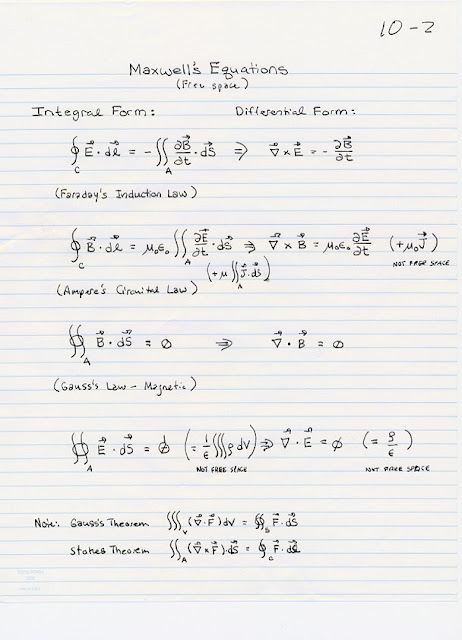 10-2
Maxwell's Equations
(Free space)
Integral Form: Differential Form:
∮_C E⃗ · dl⃗ = - ∬_A ∂B⃗/∂t · dS⃗ ⇒ ∇⃗ × E⃗ = - ∂B⃗/∂t
(Faraday's Induction Law)
∮_C B⃗ · dl⃗ = μ₀ε₀ ∬_A ∂E⃗/∂t · dS⃗ ⇒ ∇⃗ × B⃗ = μ₀ε₀ ∂E⃗/∂t (+μ₀J⃗)
(+μ ∬_A J⃗·dS⃗) NOT FREE SPACE
(Ampere's Circuital Law)
∯_A B⃗ · dS⃗ = 0 ⇒ ∇⃗ · B⃗ = 0
(Gauss's Law - Magnetic)
∯_A E⃗ · dS⃗ = 0 (= 1/ε ∭ρ dV) ⇒ ∇⃗ · E⃗ = 0 (= ρ/ε)
NOT FREE SPACE NOT FREE SPACE
Note: Gauss's Theorem ∭_V (∇⃗ · F⃗) dV = ∯_S F⃗ · dS⃗
Stokes Theorem ∬_A (∇⃗ × F⃗) · dS⃗ = ∮_C F⃗ · dl⃗